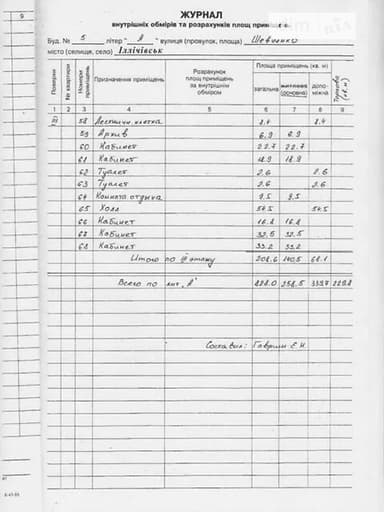 9
ЖУРНАЛ
внутрішніх обмірів та розрахунків площ
Буд. № 5 літер "А" вулиця (провулок, площа) Шевченко
місто (селище, село) Іллічівськ
Поверхи № квартири Номери приміщень Призначення приміщень Розрахунок площ приміщень за внутрішнім обміром Площа приміщень (кв. м)
загальна житлова (основна) допоміжна
1 2 3 4 5 6 7 8 9
58 Лестничн клетка 8.4 8.4
59 Архив 6.9 6.9
60 Кабинет 22.7 22.7
61 Кабинет 18.9 18.9
62 Туалет 2.6 2.6
63 Туалет 2.6 2.6
64 Комната отдыха 9.5 9.5
65 Холл 54.5 54.5
66 Кабинет 16.8 16.8
67 Кабинет 32.5 32.5
68 Кабинет 33.2 33.2
Итого по этажу 208.6 140.5 68.1
Всего по лит "А"
Составил: